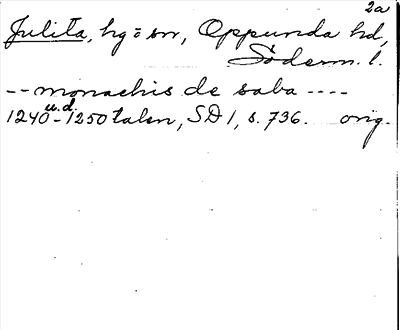 2a
Julita, hg o sn, Oppunda hd,
Söderm. l.
-- monachis de saba ----
u.d.
1240-1250 talen, SD 1, s. 736. orig.